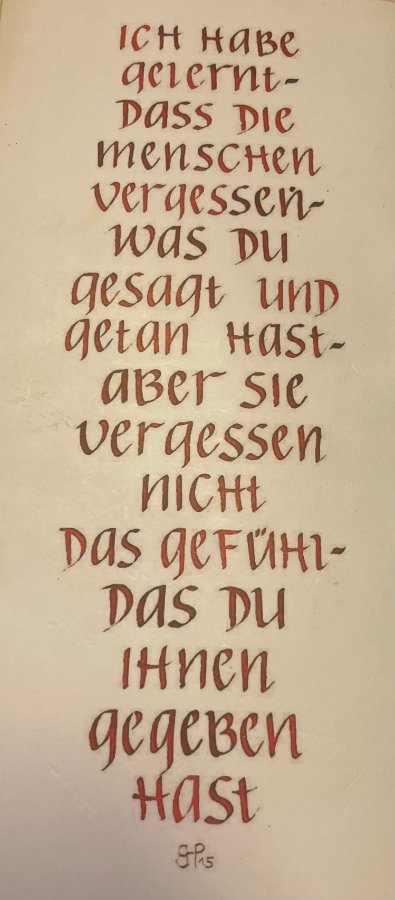 ICH HABE
gelernt-
DASS DIE
menschen
vergessen-
was DU
gesagt UND
getan HAST-
ABER SIE
vergessen
NICHT
DAS GEFÜHL-
DAS DU
IHNEN
gegeben
HAST